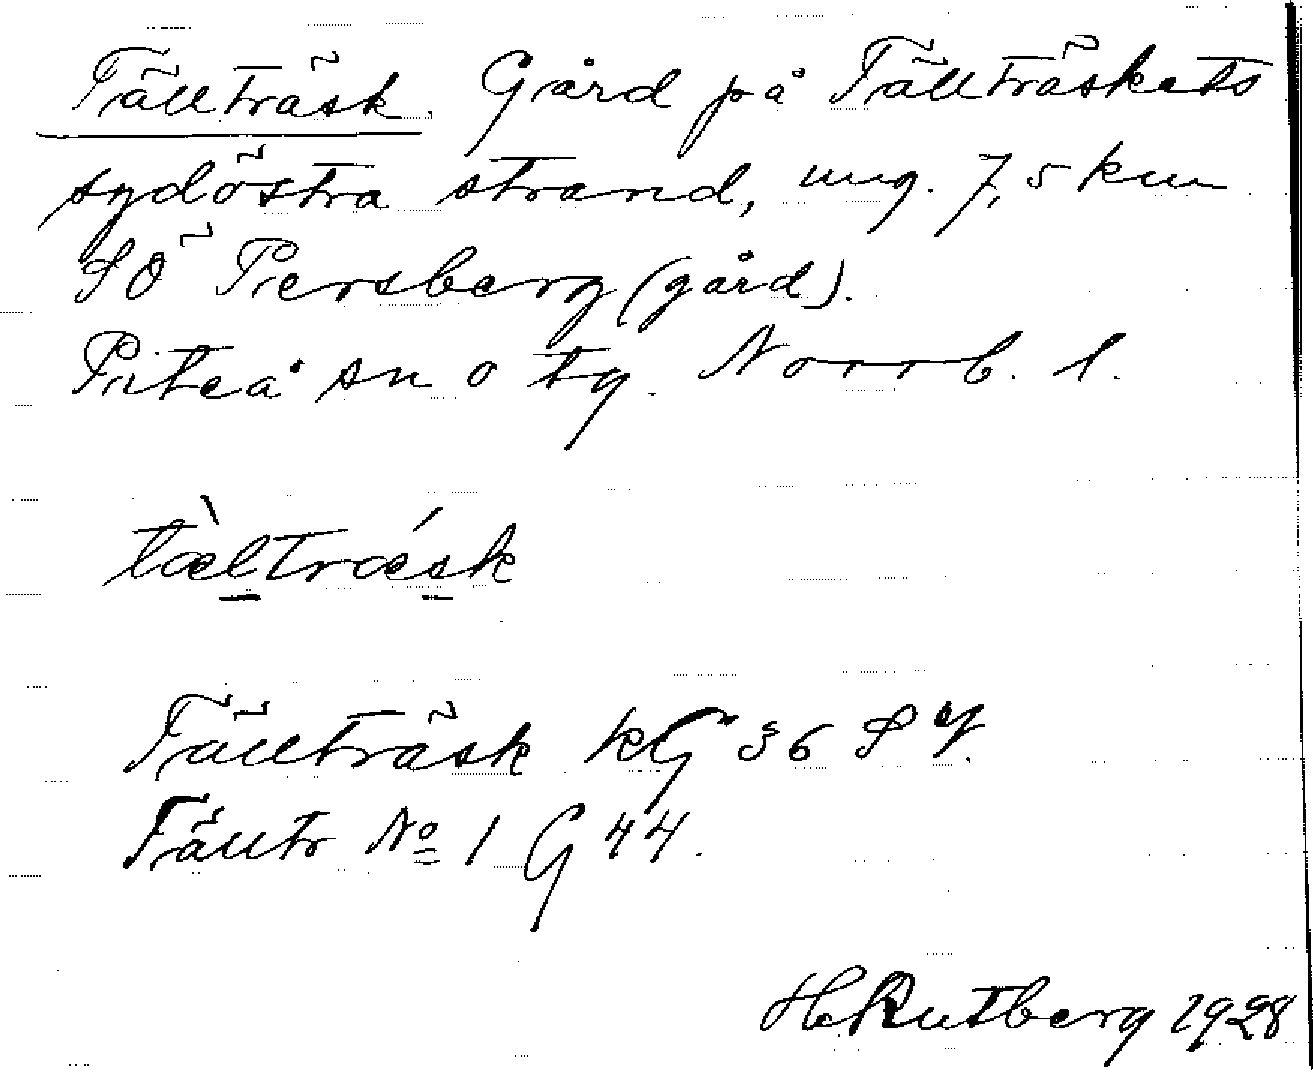 Tällträsk. Gård på Tällträskets
sydöstra strand, ung. 7,5 km
SÖ Persberg (gård).
Piteå sn o tg. Norrb. l.
tæ̀ltrǽsk
Tällträsk kG 36 SY.
Tälltr № 1 G 44.
H Rutberg 1928